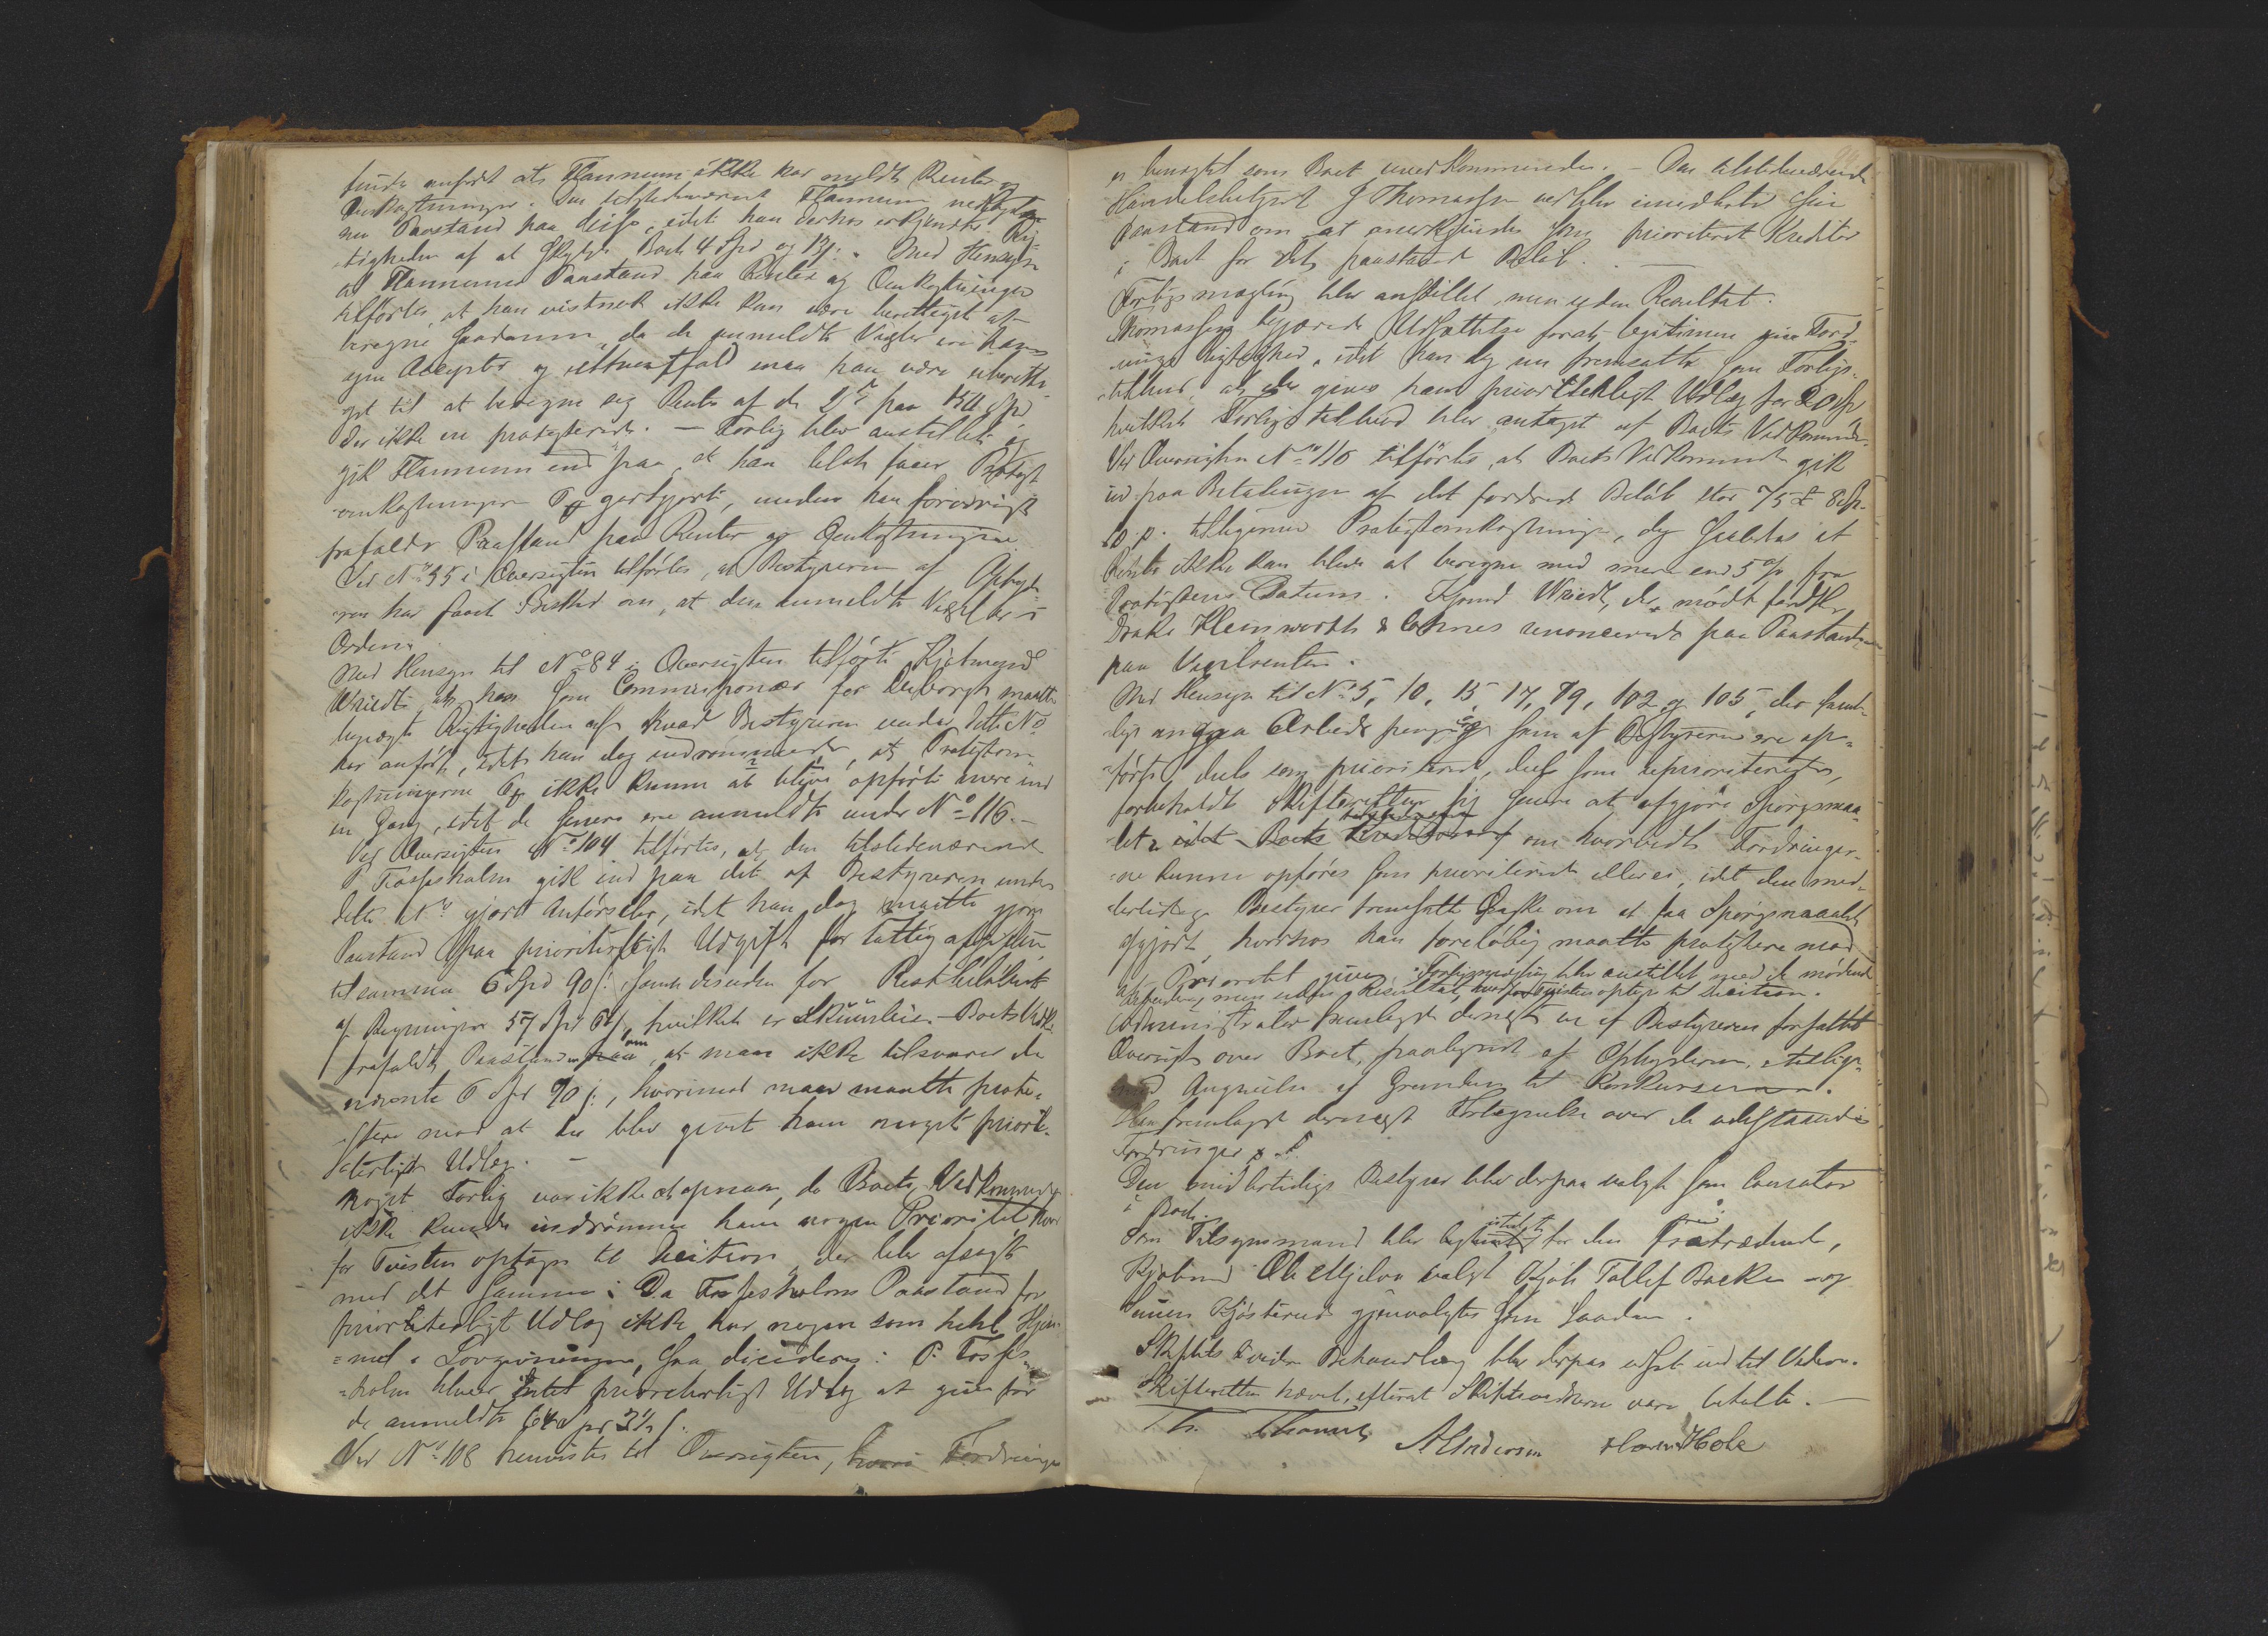 finde anført at Flannum ikke har meldt Renter og
Omkostninger. Den tilstedeværende Flannum vedtog
sin Paastand paa disse, idet han derhos erkjendte Rig-
tigheden af at skylde Boet 4 Spd og 12 s. Med Hensyn
til Flannums Paastand paa Renter og Omkostninger
tilførtes, at han vistnok ikke kan være berettiget at
beregne saadanne, da de anmeldte Vexler ere hans
egne Accepter og ethvertfald maa han være uberetti-
get til at beregne sig Renter af de 2de paa 150 Spd
der ikke ere protesterede. — Forlig blev anstillet og
gik Flannum ind paa, at han blot faaer Protest
omkostningerne godtgjort, medens han forøvrigt
frafaldt Paastand paa Renter og Omkostningerne.
Ved No 55 i Oversigten tilførtes, at Bestyreren af Opbyde-
ren har faaet Besked om, at den anmeldte Vexel er i
Orden.
Med Hensyn til No 84 i Oversigten tilførte Kjøbmand
Wriedt, at han som Commissionær for maatte
benægte Rigtigheden af hvad Bestyreren under dette No
har anført, idet han dog indrømmede, at Protestom-
kostningerne ikke kunne at blive opført mere end
en Gang, idet de senere ere anmeldte under No 116. —
Ved Oversigten No 104 tilførtes, at den tilstedeværende
P. Fossesholm gik ind paa det af Bestyreren under
dette No gjort Anførsler, idet han dog maatte gjøre
Paastand paa prioriteligt Udgift for Fattigafgiften
tilsammen 6 Spd 90 s. samt desuden for Restbeløbet
af Regningen 57 Spd hvilket er Skuurleie. — Boets Vedk.
frafaldt Paastanden om, at man ikke tilsvarer de
nævnte 6 Spd 90 s., hvorimod man maatte prote-
stere mod at der blev givet ham noget priori-
terligt Udlæg. —
Noget Forlig var ikke at opnaa, da Boets Vedkommende
ikke kunde indrømme ham nogen Prioritet, hvor
for Tvisten optages til Decision, der blev afsagt
med det samme: Da Fossesholms Paastand for
prioriterligt Udlæg ikke har nogen som helst Hjem-
mel i Lovgivningen, saa decideres: P. Fosses-
holm bliver intet prioriterligt Udlæg at give for
de anmeldte 64 Spd 21 s.
Ved No 108 henvistes til Oversigten, hvori Fordringen
er benægtet som Boet uvedkommende. — Den tilstedeværende
Handelsbetjent J Thomassen vedblev imidlertid sin
Paastand om at anerkjendes som prioriteret Kreditor
i Boet for det paastaaede Beløb.
Forligsmægling blev anstillet, men uden Resultat.
Thomassen begjærede Udsættelse forat legitimere sin Ford-
rings Rigtighed, idet han dog nu fremsatte som Forligs-
tilbud, at der gives ham prioritetligt Udlæg for 20 Sp
hvilket Forligstilbud blev antaget af Boets Vedkommende.
Ved Oversigten No 116 tilførtes, at Boets Vedkommende gik
ind paa Betalingen af det fordrede Beløb stor 75 £ 8 sh.
10 p. tilligemed Protestomkostninger, dog saaledes at
Rente ikke kan blive at beregne med mere end 5 % fra
Protestens Datum. Kjøbmd Wriedt, der mødte for
Drake Kleinworth & Cohnes renoncerede paa Paastanden
paa Vexelrenten.
Med Hensyn til No 5, 10, 15, 17, 79, 102 og 105, der samt-
lige angaa Arbeidspenge og som af Bestyreren ere op-
ført, dels som prioriterede, dels som uprioriterede,
forbeholdt Skifteretten sig senere at afgjøre Spørgsmaa-
let om hvorvidt Fordringer-
ne kunne opføres som prioriterede eller ei, idet den mid-
lertidige Bestyrer fremsatte Ønske om at faa Spørgsmaalet
afgjort, hvorhos han foreløbig maatte protestere mod
at Prioritet gives. Forligsmægling blev anstillet med de mødende
men uden Resultat, hvorfor Tvisten optoges til Decision.
Administrator fremlagde dernæst en af Bestyreren forfattet
Oversigt over Boet, paategnet af Opbyderen, tillige-
med Angivelse af Grunden til Konkursen.
Han fremlagde dernæst Fortegnelse over de udestaaende
Fordringer
Den midlertidige Bestyrer blev derpaa valgt som Curator
i Boet.
Som Tilsynsmand blev istedet for den fratrædende,
Kjøbmd Ole Mjelva valgt Kjøbm Tollef Backe og
Kjøsterud gjenvalgtes som saadan.
Skiftets videre Behandling blev derpaa udsat indtil Videre.
Skifteretten hævet, efterat Skiftevidnerne vare betalte. —
Th. Thams A Andersen Hole